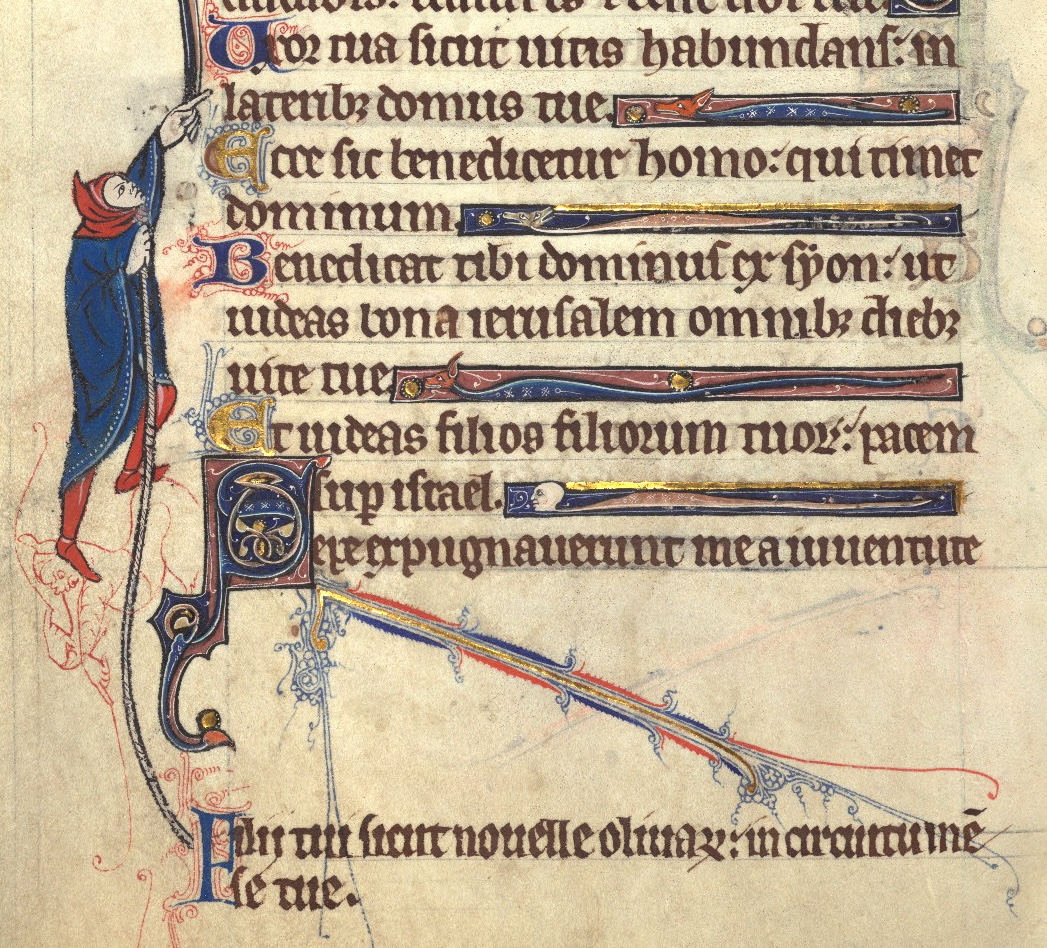 Uxor tua sicut uitis habundans: in
lateribꝫ domus tue.
Ecce sic benedicetur homo: qui timet
dominum.
Benedicat tibi dominus ex sẏon: ut
uideas bona ierusalem omnibꝫ diebꝫ
uite tue
Et uideas filios filiorum tuoꝝ: pacem
sup israel.
Sepe expugnauerunt me a iuuentute
Filij tui sicut nouelle oliuaꝝ: in circuitu mē
se tue.